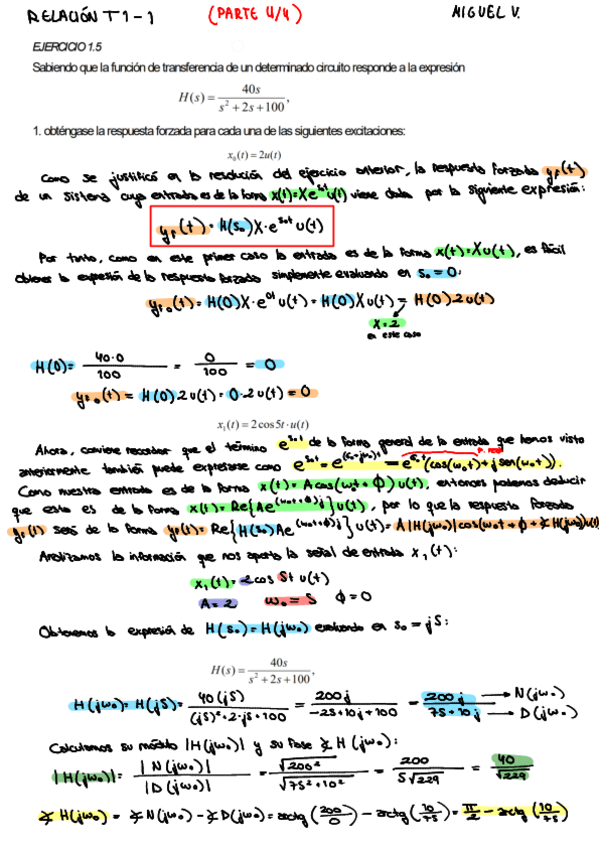 RELACIÓN T1-1 (PARTE 4/4) MIGUEL V.
EJERCICIO 1.5
Sabiendo que la función de transferencia de un determinado circuito responde a la expresión
H(s) = 40s / (s² + 2s + 100),
1. obténgase la respuesta forzada para cada una de las siguientes excitaciones:
x₀(t) = 2u(t)
Como se justificó en la resolución del ejercicio anterior, la respuesta forzada y_f(t)
de un sistema cuya entrada es de la forma x(t)=Xe^{s₀t}u(t) viene dada por la siguiente expresión:
y_f(t) = H(s₀)X·e^{s₀t}u(t)
Por tanto, como en este primer caso la entrada es de la forma x(t)=Xu(t), es fácil
obtener la expresión de la respuesta forzada simplemente evaluando en s₀ = 0:
y_{f0}(t) = H(0)X·e^{0t}u(t) = H(0)Xu(t) = H(0)·2u(t)
X=2
en este caso
H(0) = 40·0 / 100 = 0 / 100 = 0
y_{f0}(t) = H(0)·2u(t) = 0·2u(t) = 0
x₁(t) = 2cos5t·u(t)
Ahora, conviene recordar que el término e^{s₀t} de la forma general de la entrada que hemos visto
P. real
anteriormente también puede expresarse como e^{s₀t} = e^{(σ₀+jω₀)t} = e^{σ₀t}(cos(ω₀t)+jsen(ω₀t)).
Como nuestra entrada es de la forma x(t) = Acos(ω₀t + ϕ)u(t), entonces podemos deducir
que esta es de la forma x(t) = Re{Ae^{(ω₀t+ϕ)j}}u(t), por lo que la respuesta forzada
y_f(t) será de la forma y_f(t) = Re{H(s₀)Ae^{(ω₀t+ϕ)j}}u(t) = A|H(jω₀)|cos(ω₀t + ϕ + ∡H(jω₀))u(t)
Analizamos la información que nos aporta la señal de entrada x₁(t):
x₁(t) = 2cos 5t u(t)
A = 2 ω₀ = 5 ϕ = 0
Obtenemos la expresión de H(s₀) = H(jω₀) evaluando en s₀ = j5:
H(s) = 40s / (s² + 2s + 100),
H(jω₀) = H(j5) = 40(j5) / (j5)²+2·j5+100 = 200j / -25+10j+100 = 200j / 75+10j → N(jω₀) → D(jω₀)
Calculamos su módulo |H(jω₀)| y su fase ∡H(jω₀):
|H(jω₀)| = |N(jω₀)| / |D(jω₀)| = √200² / √75²+10² = 200 / 5√229 = 40 / √229
∡H(jω₀) = ∡N(jω₀) - ∡D(jω₀) = arctg(200/0) - arctg(10/75) = π/2 - arctg(10/75)